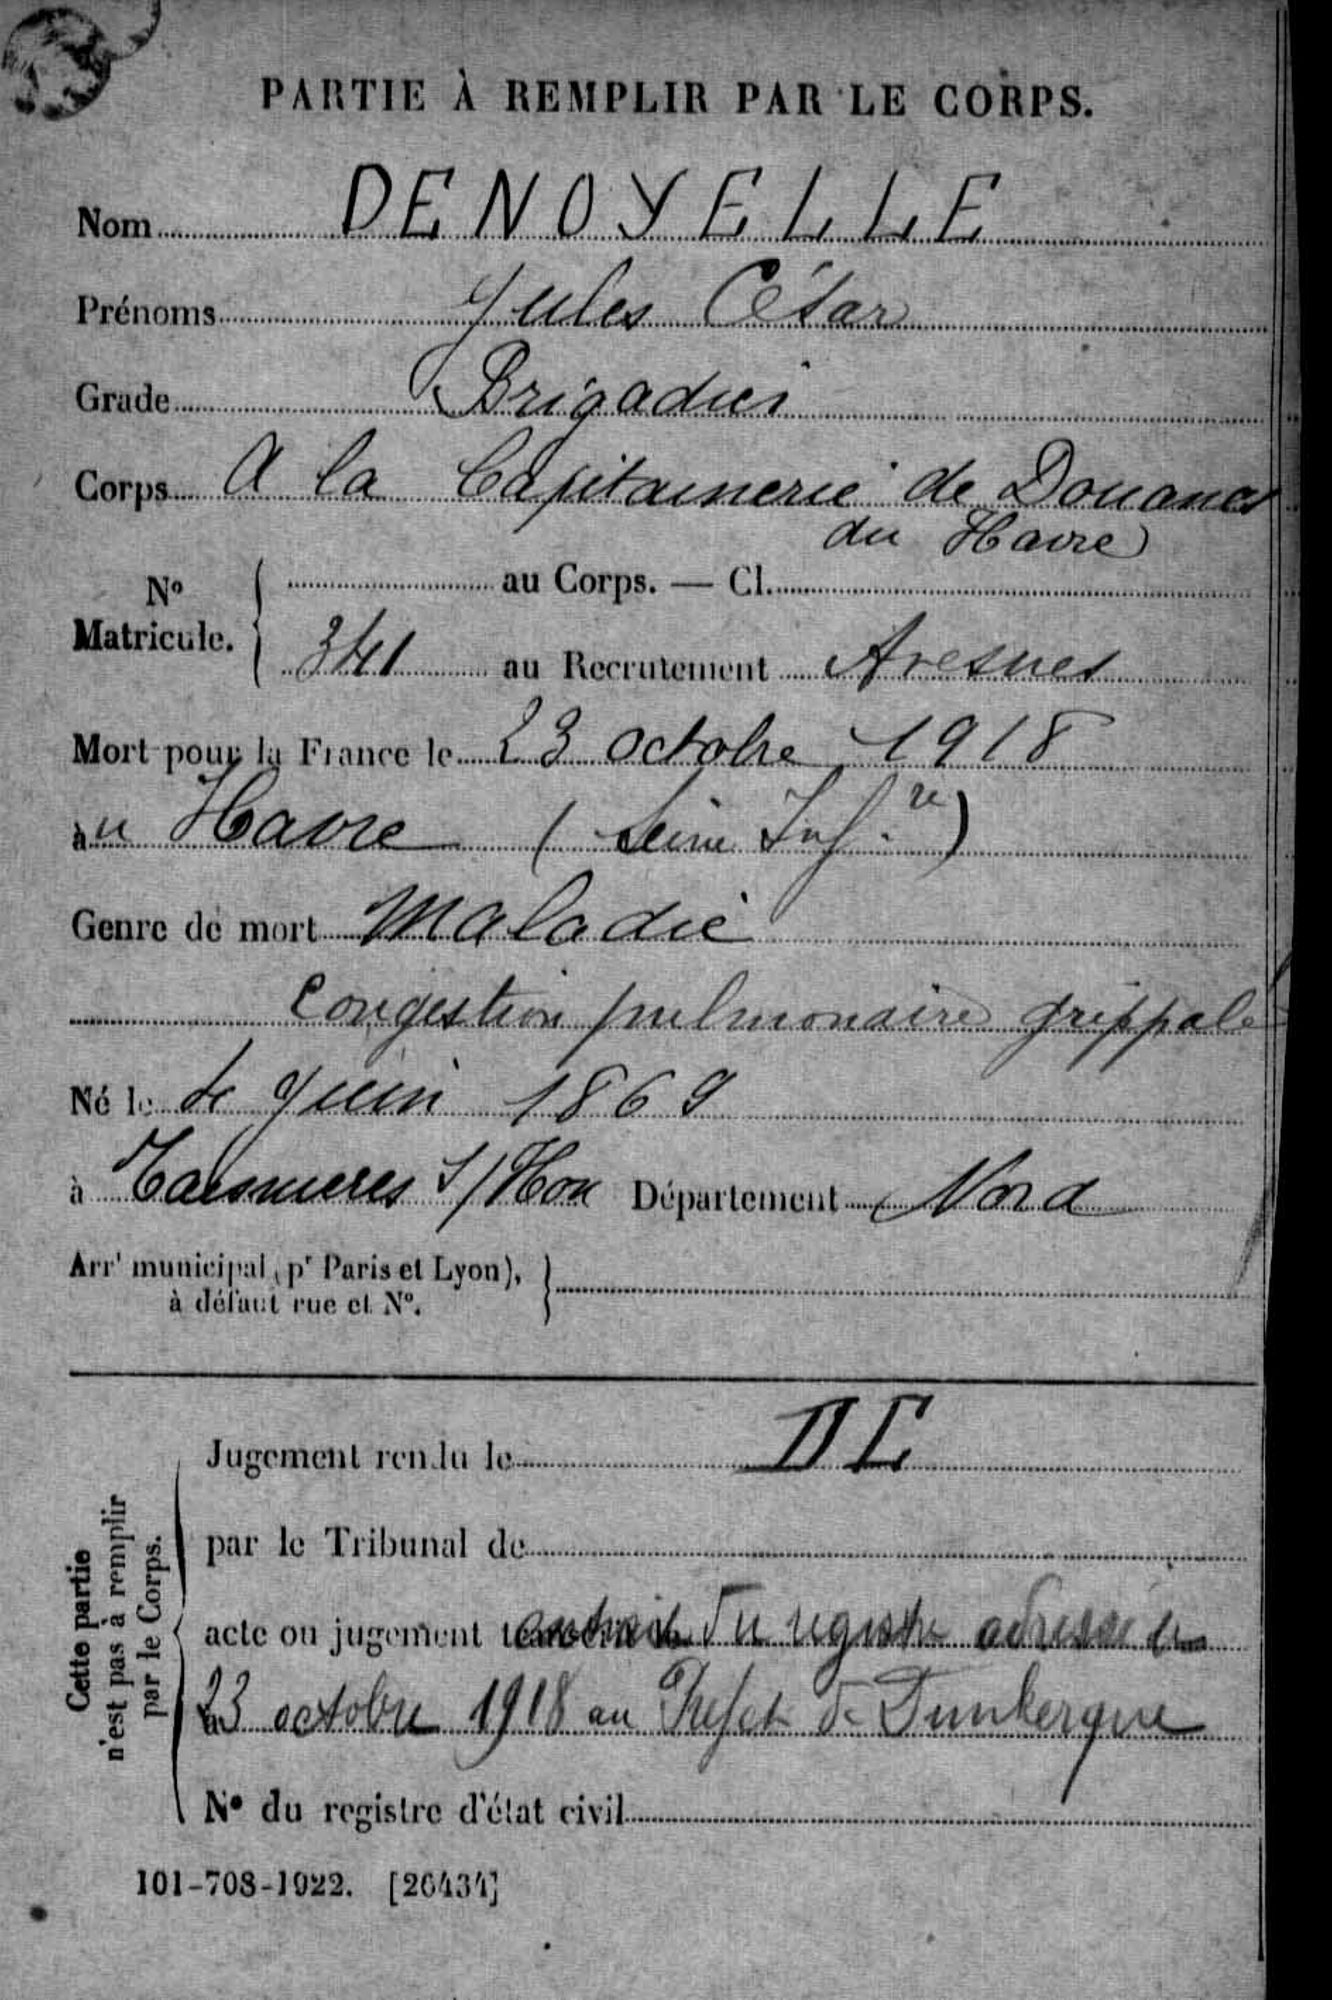 PARTIE À REMPLIR PAR LE CORPS.
Nom DENOYELLE
Prénoms Jules César
Grade Brigadier
Corps A la Capitainerie de Douanes
du Havre
No
Matricule.
au Corps. — Cl.
341 au Recrutement Avesnes
Mort pour la France le 23 octobre 1918
au Havre (Seine Infre)
Genre de mort Maladie
Congestion pulmonaire grippale
Né le 4 Juin 1869
à Taisnières s/Hon Département Nord
Arrt municipal (pr Paris et Lyon),
à défaut rue et No.
Jugement rendu le DC
par le Tribunal de
acte ou jugement extrait du registre adressé le
23 octobre 1918 au Préfet de Dunkerque
No du registre d'état civil
Cette partie
n'est pas à remplir
par le Corps.
101-708-1922. [26434]